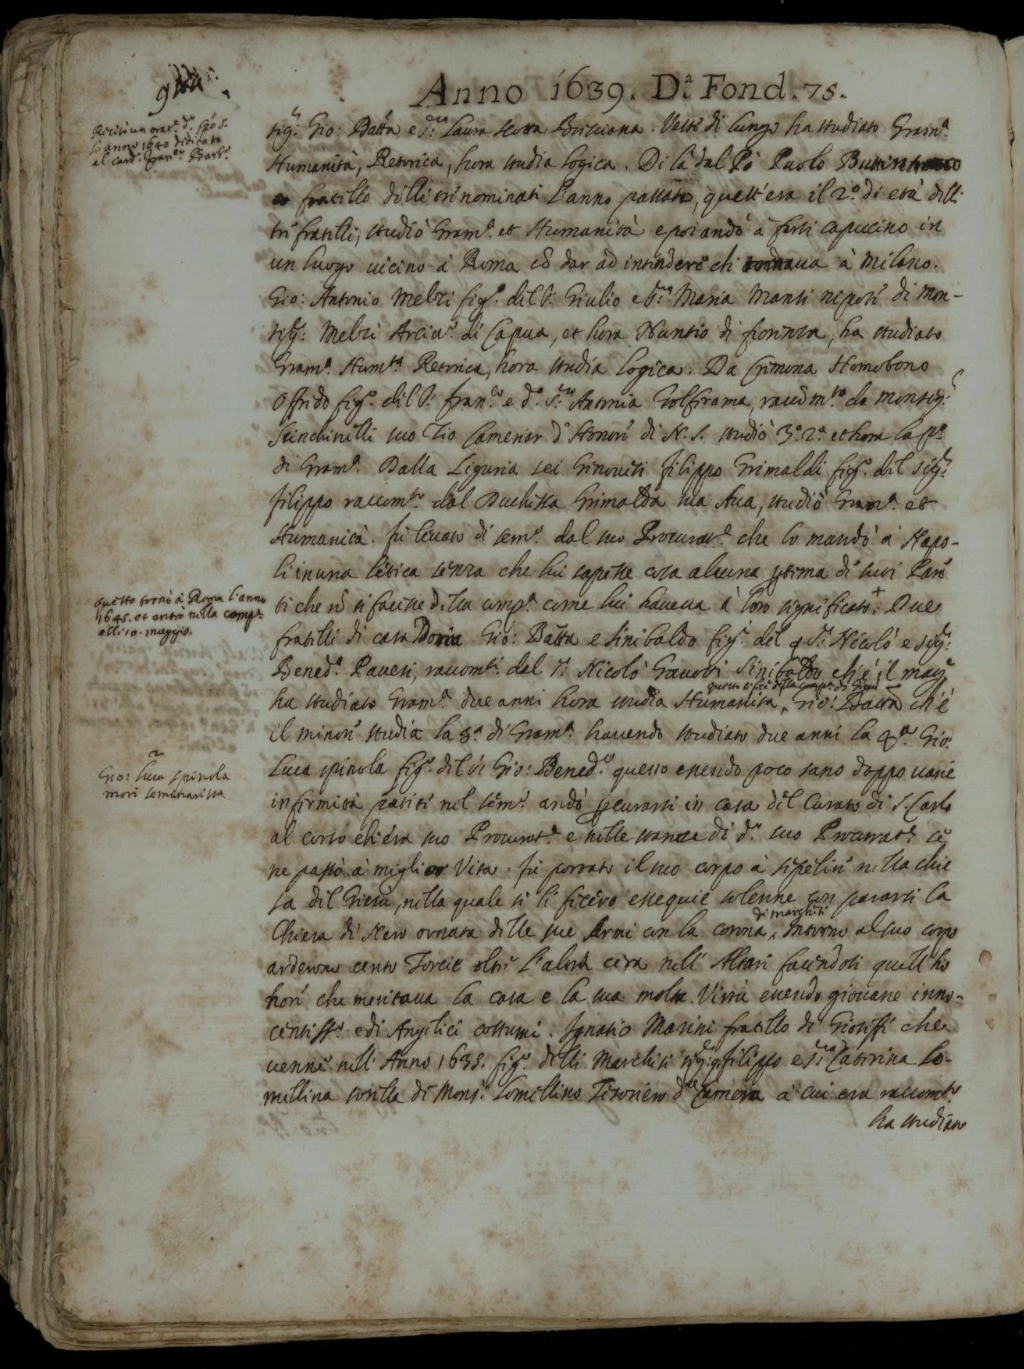 Anno 1639. D.ª Fond. 75.
Recitò un orat.e d. Spò S.
l'anno 1640 dedicata
al Card. Fran.co Barb.o
sig.r Gio: Batta e S.ra Laura Bresciana. Vesti di lungo ha studiato Gram.a
Humanità, Retorica, hora studia logica. Di là dal Pò Paolo
fratello delli trè nominati l'anno passato, quest'era il 2.o di età delli
trè fratelli, studiò Gram.a et Humanità e poi andò à farsi capuccino in
un luogo vicino à Roma cō dar ad intendere ch tornava à Milano.
Gio: Antonio Melzi fig.o del S. Giulio e S.ra Maria nipoti di Mon-
sig.r Melzi Arciv.o di Capua, et hora Nuntio di fiorenza, ha studiato
Gram.a Hum.tà Retorica, hora studia logica. Da Cremona Homobono
Offrido fig.o del S. Fran.co e d.a S.ra Antonia Golferama, racōm.to da Monsig.r
suo Zio Camerier d'Honore di N. S. studiò 3.a 2.a et hora la p.a
di Gram.a Dalla Liguria sei Genovesi filippo Grimaldi fig.o del sig.r
filippo raccom.to dal Duchessa Grimalda sua Ava, studiò Gram.a et
Humanità. fu levato di sem.o dal suo Procurat.e che lo mandò à Napo-
li in una letica senza che lui sapesse cosa alcuna prima di suoi Paren
ti che nō si facesse della comp.a come lui haveva à loro significato + Due
questo tornò à Roma l'anno
1645. et entrò nella comp.a
alli 10. maggio.
fratelli di casa Doria Gio: Batta e Sinibaldo fig.i del q. S. Nicolò e sig.ra
Bened.a Pavesi, raccom.ti dal S. Nicolò Sinibaldo ch'è il mag.e
ha studiato Gram.a due anni hora studia Humanità, Gio: Batta ch'è
questo si fece della comp.a di Giesù
il minore studia la 3.a di Gram.a havendo studiato due anni la 4.a Gio:
Luca spinola fig.o del S. Gio: Bened.o questo essendo poco sano doppo varie
Gio: Luca spinola
morì seminarista
infirmità patite nel sem.o andò p curarsi in casa del Curato di S. Carlo
al corso ch'era suo Procurat.e e nelle stanze di d.o suo Procurat.e se
ne passò à miglior Vita. fu portato il suo corpo à sepelire nella chie
sa del Giesù, nella quale si li fecero essequie solenne con pararsi la
Chiesa di Nero ornata delle sue Armi con la corona di marchesi, intorno al suo corpo
ardevono cento Torcie oltre l'altra cera nell'Altari facendosi quell'ho
nori che meritava la casa e la sua molta Virtù essendo giovane inno-
centiss.o e di Angelici costumi. Ignatio Marini fratello di Gioseffe che
venne nell'Anno 1638. fig.o delli Marchesi sig.r filippo e S.ra Caterina Lo-
mellina sorella di Mons.r Lomellino Tesoriero d.a Camera a cui era raccom.to
ha studiato